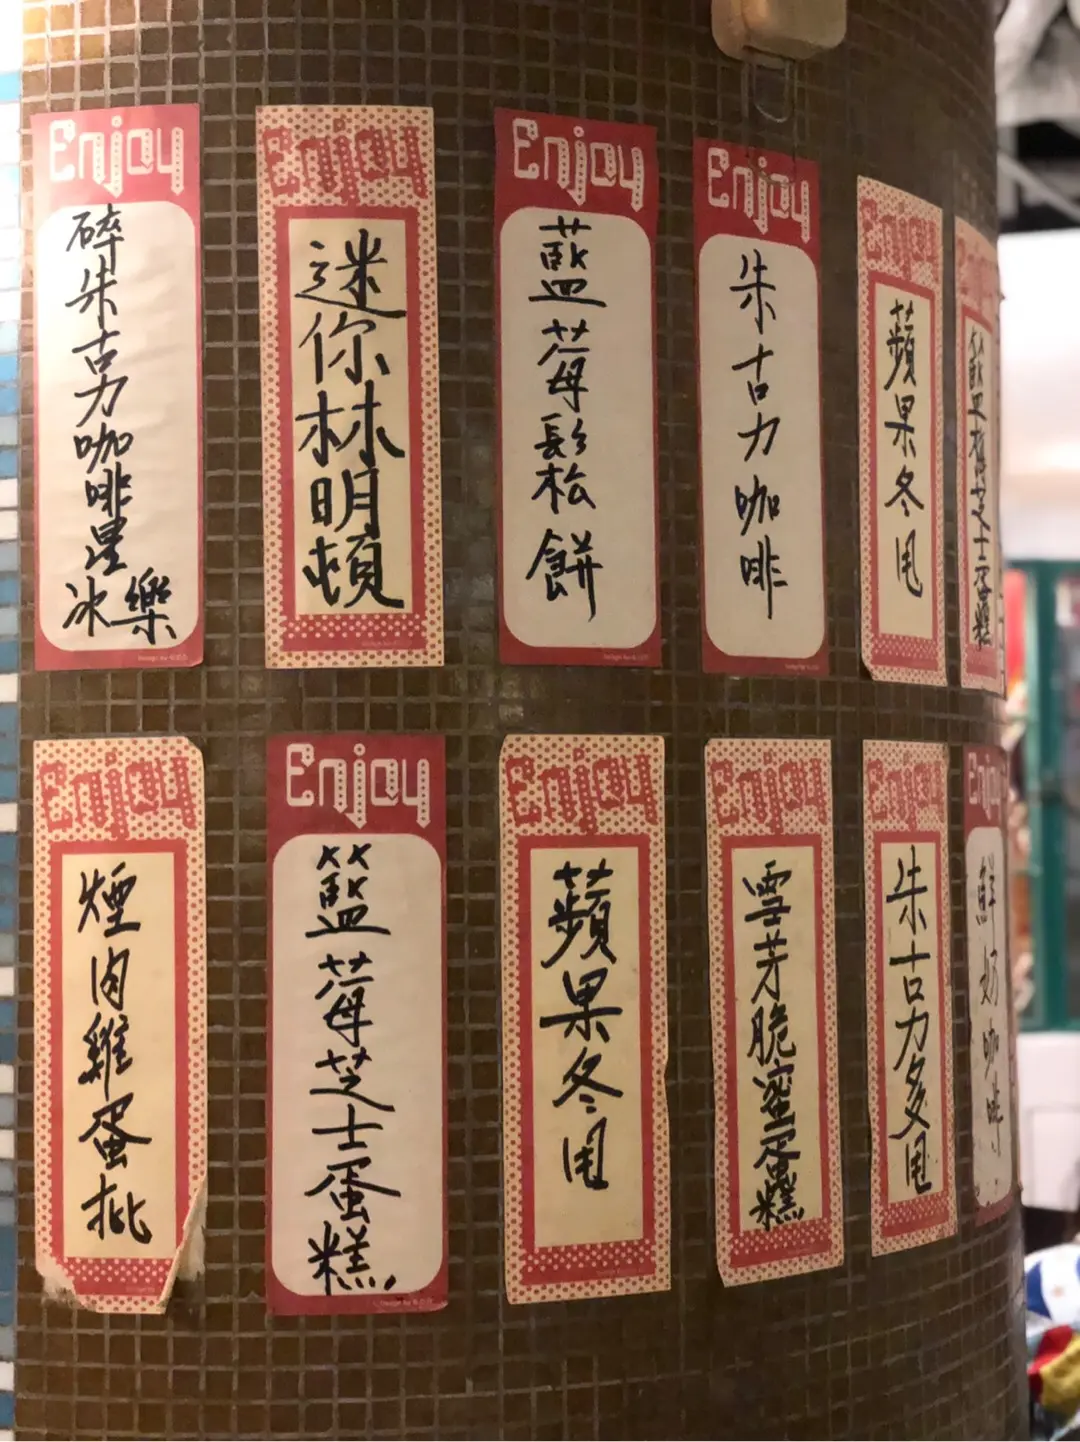 Enjoy
碎朱古力咖啡星冰樂
Enjoy
迷你林明頓
Enjoy
藍莓鬆松餅
Enjoy
朱古力咖啡
Enjoy
蘋果冬甩
Enjoy
煙肉雞蛋批
Enjoy
籃莓芝士蛋糕
Enjoy
蘋果冬甩
Enjoy
雪芳脆蜜蛋糕
Enjoy
朱古力多甩
Enjoy
鮮奶咖啡